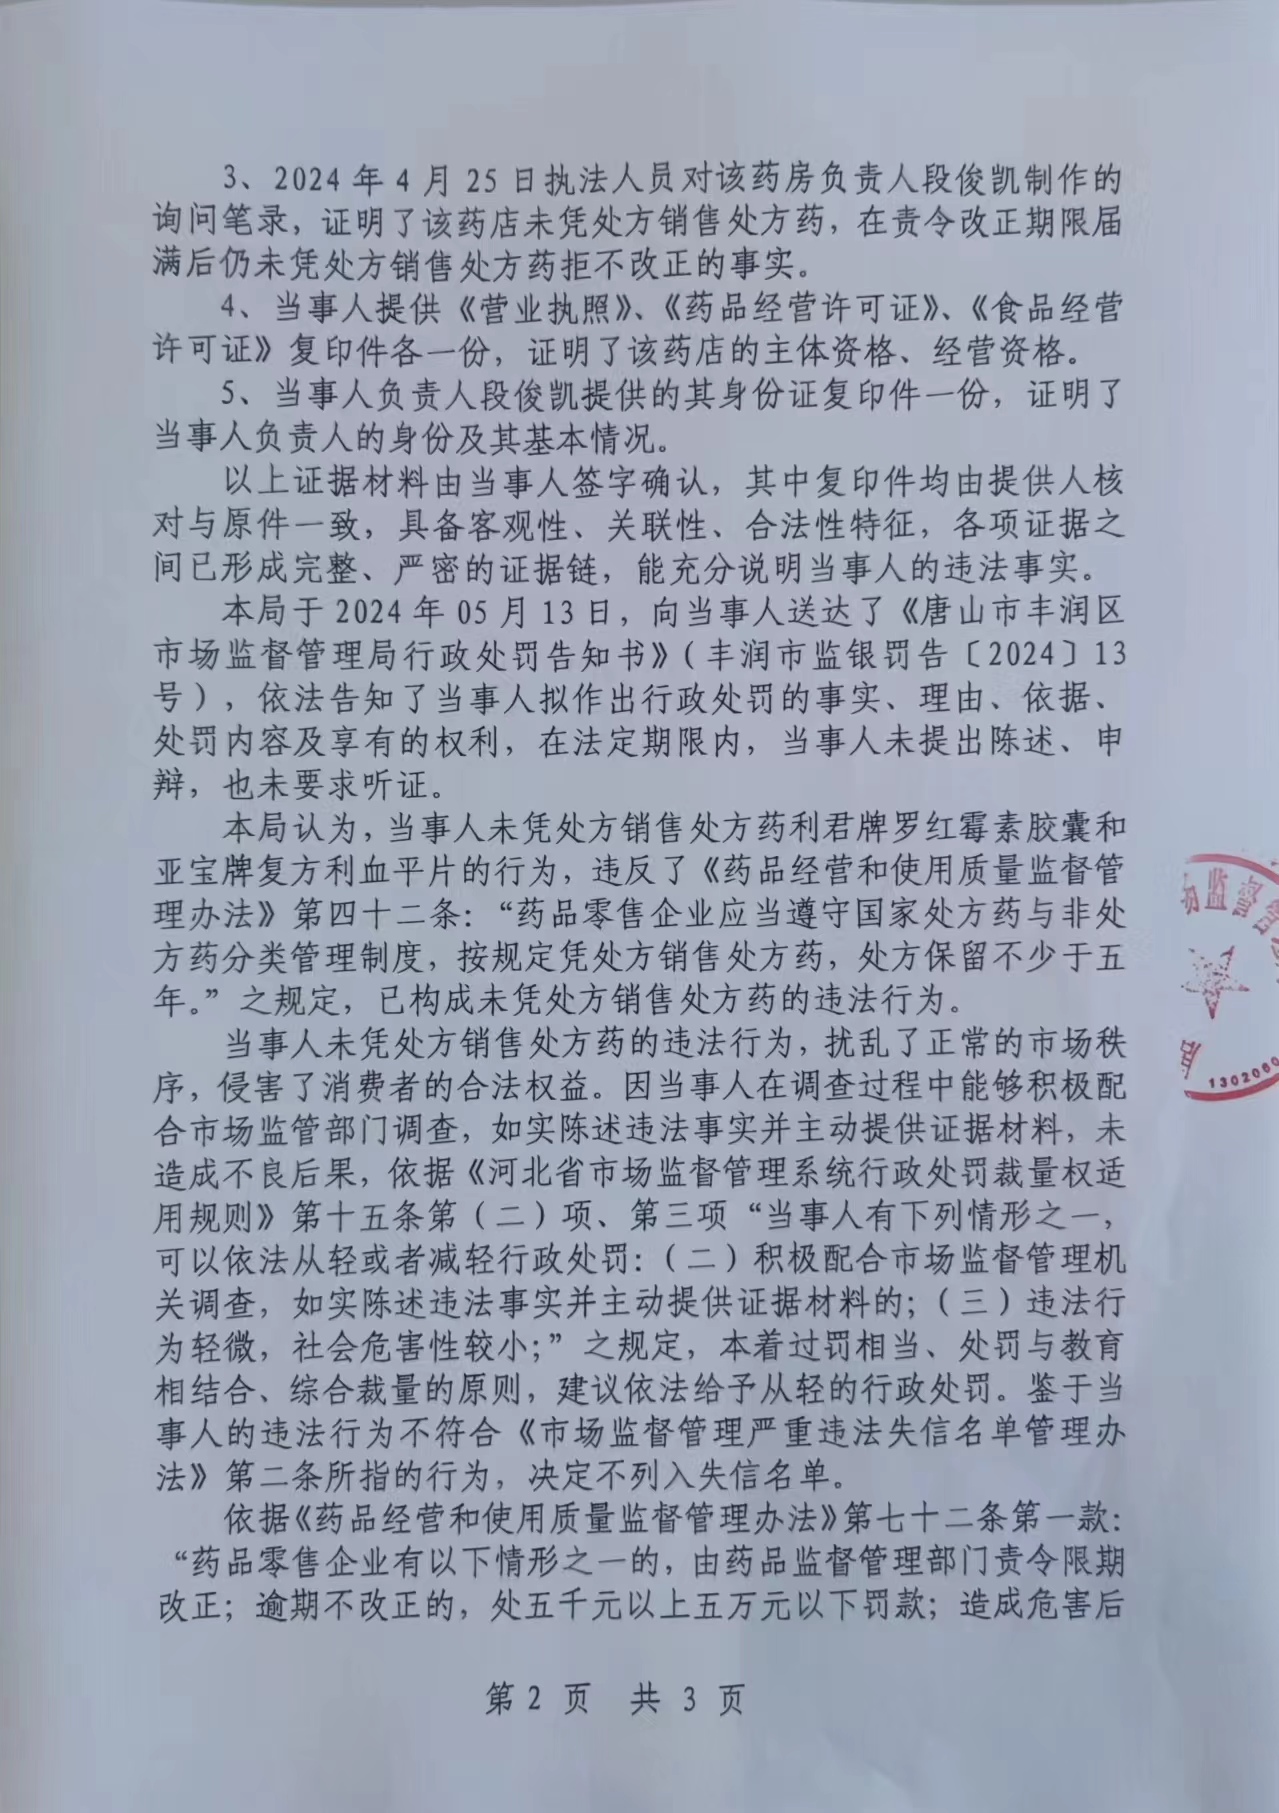 3、2024 年 4 月 25 日执法人员对该药房负责人段俊凯制作的
询问笔录，证明了该药店未凭处方销售处方药，在责令改正期限届
满后仍未凭处方销售处方药拒不改正的事实。
4、当事人提供《营业执照》、《药品经营许可证》、《食品经营
许可证》复印件各一份，证明了该药店的主体资格、经营资格。
5、当事人负责人段俊凯提供的其身份证复印件一份，证明了
当事人负责人的身份及其基本情况。
以上证据材料由当事人签字确认，其中复印件均由提供人核
对与原件一致，具备客观性、关联性、合法性特征，各项证据之
间已形成完整、严密的证据链，能充分说明当事人的违法事实。
本局于 2024 年 05 月 13 日，向当事人送达了《唐山市丰润区
市场监督管理局行政处罚告知书》（丰润市监银罚告〔2024〕13
号），依法告知了当事人拟作出行政处罚的事实、理由、依据、
处罚内容及享有的权利，在法定期限内，当事人未提出陈述、申
辩，也未要求听证。
本局认为，当事人未凭处方销售处方药利君牌罗红霉素胶囊和
亚宝牌复方利血平片的行为，违反了《药品经营和使用质量监督管
理办法》第四十二条：“药品零售企业应当遵守国家处方药与非处
方药分类管理制度，按规定凭处方销售处方药，处方保留不少于五
年。”之规定，已构成未凭处方销售处方药的违法行为。
当事人未凭处方销售处方药的违法行为，扰乱了正常的市场秩
序，侵害了消费者的合法权益。因当事人在调查过程中能够积极配
合市场监管部门调查，如实陈述违法事实并主动提供证据材料，未
造成不良后果，依据《河北省市场监督管理系统行政处罚裁量权适
用规则》第十五条第（二）项、第三项“当事人有下列情形之一，
可以依法从轻或者减轻行政处罚：（二）积极配合市场监督管理机
关调查，如实陈述违法事实并主动提供证据材料的；（三）违法行
为轻微，社会危害性较小；”之规定，本着过罚相当、处罚与教育
相结合、综合裁量的原则，建议依法给予从轻的行政处罚。鉴于当
事人的违法行为不符合《市场监督管理严重违法失信名单管理办
法》第二条所指的行为，决定不列入失信名单。
依据《药品经营和使用质量监督管理办法》第七十二条第一款：
“药品零售企业有以下情形之一的，由药品监督管理部门责令限期
改正；逾期不改正的，处五千元以上五万元以下罚款；造成危害后
第 2 页 共 3 页
场监督管
1302060